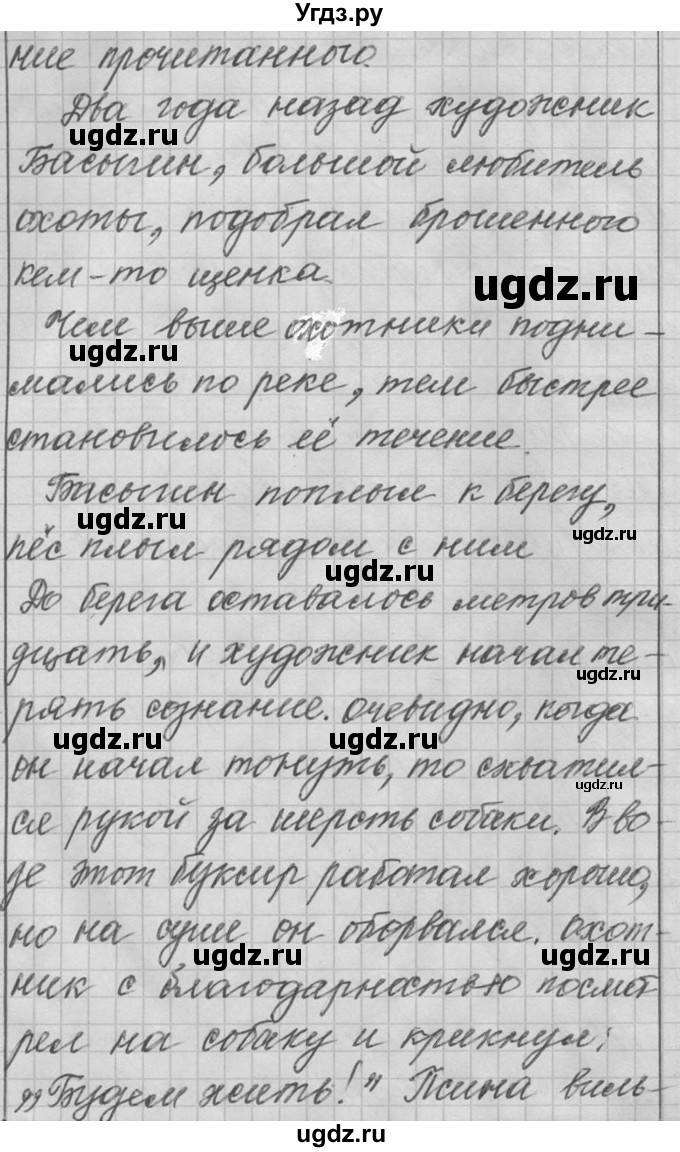 Угдз.ру
ние прочитанного.
Два года назад художник
ugdz.ru
Басыгин, большой любитель
охоты, подобрал брошенного
кем-то щенка.
ugdz.ru
Чем выше охотники подни-
ugdz.ru
мались по реке, тем быстрее
становилось её течение.
Басыгин поплыл к берегу,
ugdz.ru
ugdz.ru
пёс плыл рядом с ним
ugdz.ru
До берега оставалось метров три-
дцать, и художник начал те-
ugdz.ru
рять сознание. Очевидно, когда
ugdz.ru
ugdz.ru
он начал тонуть, то схватил-
ugdz.ru
ся рукой за шерсть собаки. В во-
де этот буксир работал хорошо,
но на суше он оборвался. Охот-
ugdz.ru
ugdz.ru
ник с благодарностью посмот
рел на собаку и крикнул:
„Будем жить!" Псина виль-
ugdz.ru
ugdz.ru